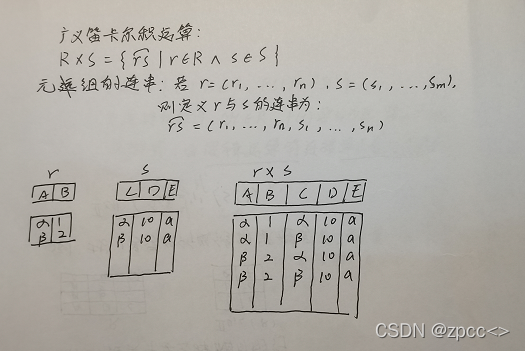 广义笛卡尔积运算:
R × S = { r͡s | r∈R ∧ s∈S }
元组的连串: 若 r=(r₁, ..., rₙ), s=(s₁, ..., sₘ),
则定义r与s的连串为:
r͡s = (r₁, ..., rₙ, s₁, ..., sₙ)
r s r × s
A B C D E A B C D E
α 1 α 10 a α 1 α 10 a
β 2 β 10 a α 1 β 10 a
β 2 α 10 a
β 2 β 10 a
CSDN @zpcc<>